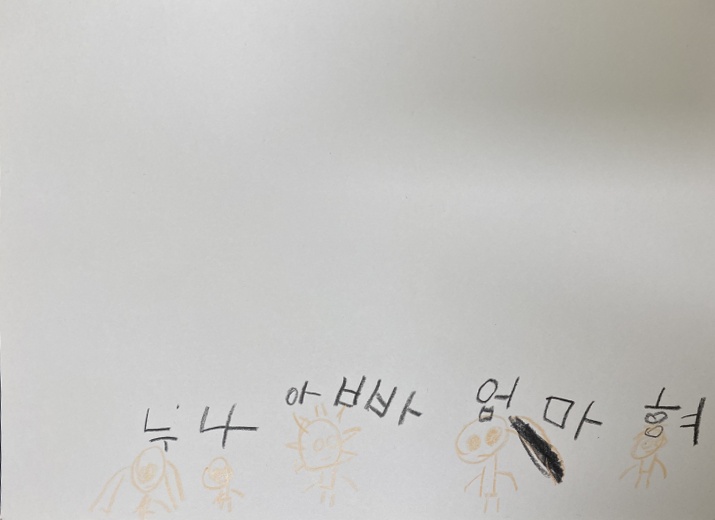 누나 아빠 엄마